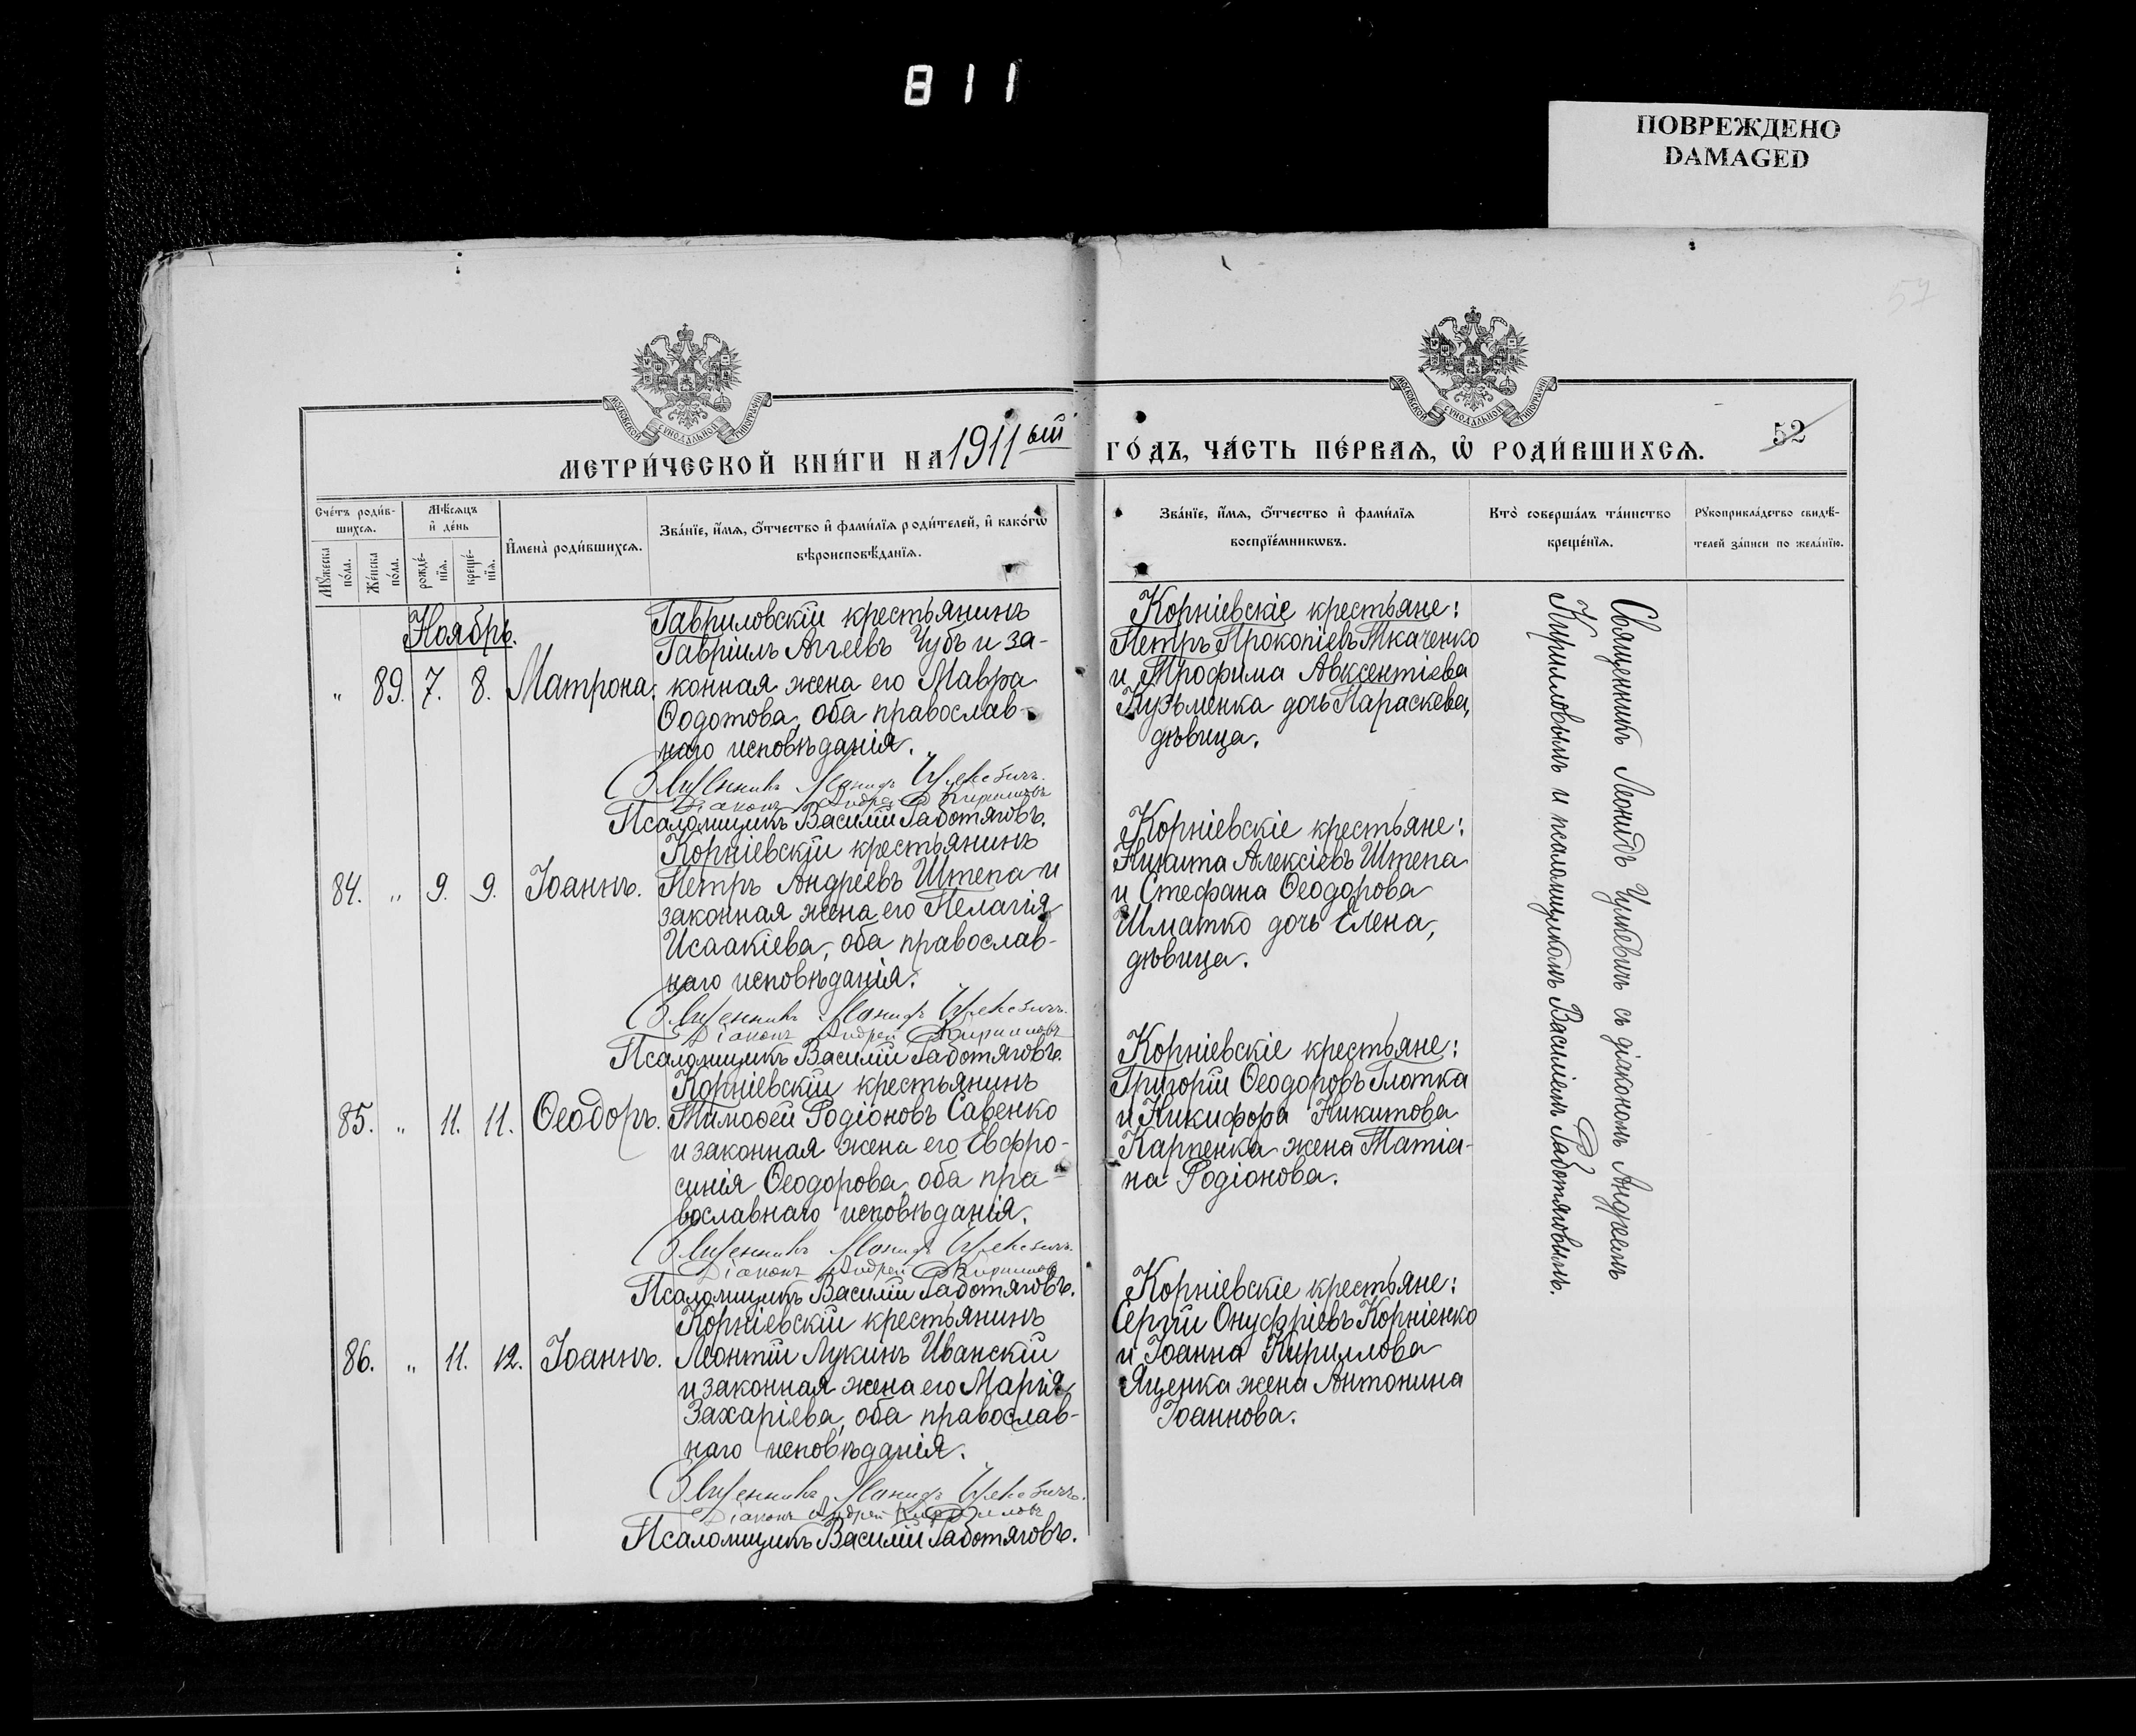 811
ПОВРЕЖДЕНО
DAMAGED
57
МОСКОВСКОЙ СѴНОДАЛЬНОЙ ТИПОГРАФІИ
МОСКОВСКОЙ СѴНОДАЛЬНОЙ ТИПОГРАФІИ
МЕТРИ́ЧЕСКОЙ КНИ́ГИ НА 1911ый ГО́ДЪ, ЧА́СТЬ ПЕ́РВАѦ, Ѡ҆ РОДИ́ВШИХСѦ.
52
Сче́тъ роди́в-
шихсѧ.
Мꙋ́жеска
по́ла.
Же́нска
по́ла.
Мѣ́сѧцъ
и҆ де́нь
рожде́-
нїѧ.
креще́-
нїѧ.
И҆мена̀ роди́вшихсѧ.
Зва́нїе, и҆́мѧ, ѻ҆́тчество и҆ фами́лїѧ роди́телей, и҆ како́гѡ
вѣроисповѣ́данїѧ.
Зва́нїе, и҆́мѧ, ѻ҆́тчество и҆ фами́лїѧ
воспрїе́мникѡвъ.
Кто̀ соверша́лъ та́инство
креще́нїѧ.
Рꙋкоприкла́дство свидѣ́-
телей за́писи по жела́нїю.
Ноябрь.
„ 89. 7. 8. Матрона.
Гавриловскій крестьянинъ
Гавріилъ Аггеевъ Чубъ и за-
конная жена его Мавра
Ѳодотова, оба православ-
наго исповѣданія.
Священникъ Леонидъ Чулкевичъ.
Діаконъ Андрей Кирилловъ
Псаломщикъ Василій Работяговъ.
Корніевскіе крестьяне:
Петръ Прокопіевъ Ткаченко
и Трофима Авксентіева
Кузьменка дочь Параскева,
дѣвица.
84. „ 9. 9. Іоаннъ.
Корніевскій крестьянинъ
Петръ Андреевъ Штепа и
законная жена его Пелагія
Исаакіева, оба православ-
наго исповѣданія.
Священникъ Леонидъ Чулкевичъ.
Діаконъ Андрей Кирилловъ
Псаломщикъ Василій Работяговъ.
Корніевскіе крестьяне:
Никита Алексіевъ Штепа
и Стефана Ѳеодорова
Шматко дочь Елена,
дѣвица.
85. „ 11. 11. Ѳеодоръ.
Корніевскій крестьянинъ
Тимоѳей Родіоновъ Савенко
и законная жена его Евфро-
синія Ѳеодорова, оба пра-
вославнаго исповѣданія.
Священникъ Леонидъ Чулкевичъ.
Діаконъ Андрей Кирилловъ
Псаломщикъ Василій Работяговъ.
Корніевскіе крестьяне:
Григорій Ѳеодоровъ Глотка
и Никифора Никитова
Карпенка жена Татіа-
на Родіонова.
86. „ 11. 12. Іоаннъ.
Корніевскій крестьянинъ
Леонтій Лукинъ Иванскій
и законная жена его Марія
Захаріева, оба православ-
наго исповѣданія.
Священникъ Леонидъ Чулкевичъ.
Діаконъ Андрей Кирилловъ
Псаломщикъ Василій Работяговъ.
Корніевскіе крестьяне:
Сергій Онуфріевъ Корніенко
и Іоанна Кириллова
Яценка жена Антонина
Іоаннова.
Священникъ Леонидъ Чулкевичъ съ діакономъ Андреемъ
Кирилловымъ и псаломщикомъ Василіемъ Работяговымъ.